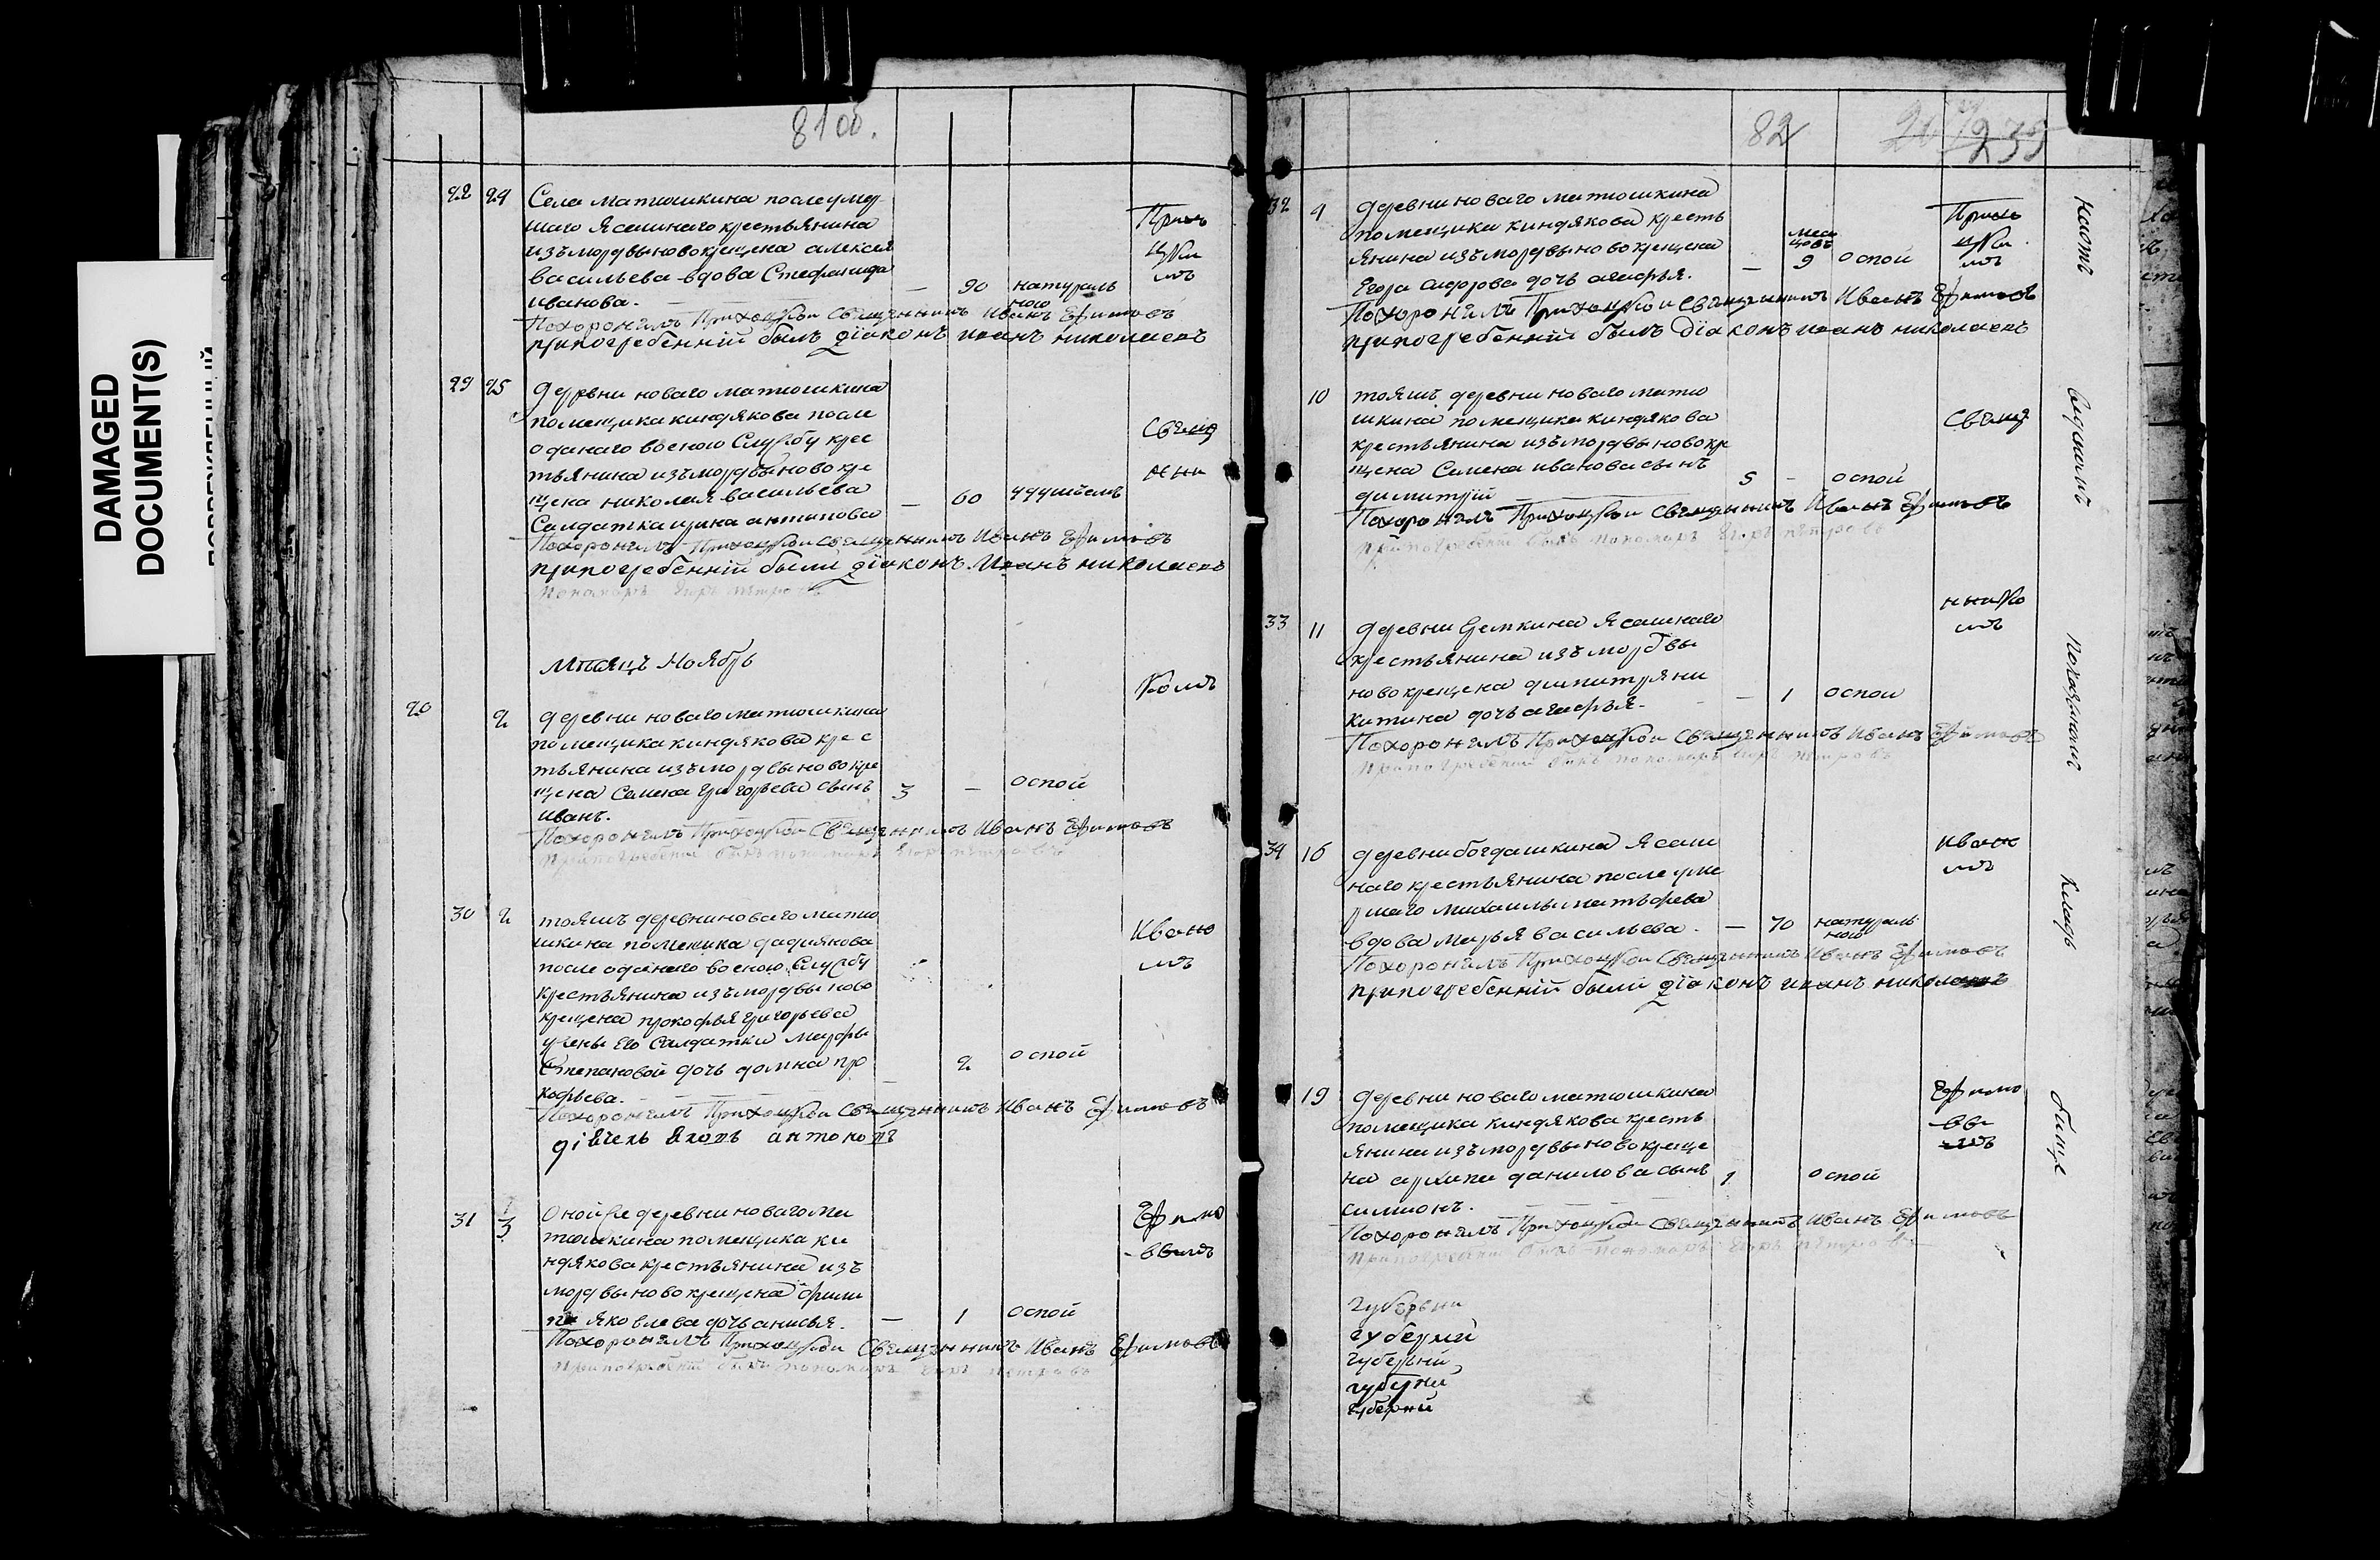 DAMAGED
DOCUMENT(S)
81 об.
28 24 Села матюшкина после умер
шаго ясашнаго крестьянина
изъ мордвы новокрещена алексея
васильева вдова Стефанида
иванова. — 90 натураль
ною
Похоронилъ Приходцкои Священникъ Иванъ Ефимовъ
при погребенніи былъ діаконъ иванъ николаевъ
29 25 деревни новаго матюшкина
помещика киндякова после
оданаго в военою Службу крес
тьянина изъ мордвы новокре
щена николая васильева
Салдатка ирина антипова — 60 удушьемъ
Похоронилъ Приходцкои священникъ Иванъ Ефимовъ
при погребенніи были діаконъ Иванъ николаевъ
Пономарь Егоръ петровъ
Мѣсяцъ Ноябрь
20 2 деревни новаго матюшкина
помещика киндякова крес
тьянина изъ мордвы новокре
щена Семена Григорьева сынъ 3 — оспой
иванъ.
Похоронилъ Приходцкои Священникъ Иванъ Ефимовъ
при погребении былъ пономарь Егоръ петровъ
30 2 тояжъ деревни новаго матю
шкина помещика
после оданаго в военою Службу
крестьянина изъ мордвы ново
крещена прокофья григорьева
у жены его Салдатки марфы
Степановой дочь домна про — 2 оспой
кофьева.
Похоронилъ Приходцкои Священникъ Иванъ Ефимовъ
дїячекъ яковъ антоновъ
31 3 Оной же деревни новаго ма
тюшкина помещика ки
ндякова крестьянина изъ
мордвы новокрещена фили
па яковлева дочь анисья. — 1 оспой
Похоронилъ Приходцкои Священникъ Иванъ Ефимовъ
при погребении былъ пономарь Егоръ петровъ
Прихо
цки
мъ
Свящ
енни
комъ
Ивано
мъ
Ефимо
вымъ
82
235
32 9 деревни новаго матюшкина
помещика киндякова кресть
янина изъ мордвы новокрещена
Егора сидорова дочь агафья. — меся
цовъ
9 оспой
Похоронилъ Приходцкои Священникъ Иванъ Ефимовъ
при погребенніи былъ діаконъ иванъ николаевъ
10 тояжъ деревни новаго матю
шкина помещика киндякова
крестьянина изъ мордвы новокре
щена Семена иванова сынъ 5 - оспой
димитрій
Похоронилъ Приходцкои Священникъ Иванъ Ефимовъ
при погребении былъ пономарь Егоръ петровъ
33 11 деревни Демкина ясашнаго
крестьянина изъ мордвы
новокрещена димитрия ни
китина дочь агафья. - 1 оспои
Похоронилъ Приходцкои Священникъ Иванъ Ефимовъ
при погребении былъ пономарь Егоръ петровъ
34 16 деревни богдашкина ясаш
наго крестьянина после уме
ршаго михаилы матфеева
вдова марья васильева. — 70 натураль
ною
Похоронилъ Приходцкои Священникъ Иванъ Ефимовъ
при погребенніи были діаконъ иванъ николаевъ
19 деревни новаго матюшкина
помещика киндякова кресть
янина изъ мордвы новокреще
на архипа данилова сынъ 1 оспой
симионъ.
Похоронилъ Приходцкои Священникъ Иванъ Ефимовъ
при погребении былъ пономарь Егоръ петровъ
губерни
губерній
губерній
губерни
губерни
Прихо
цки
мъ
Свяще
ннико
мъ
Ивано
мъ
Ефимо
вы
мъ